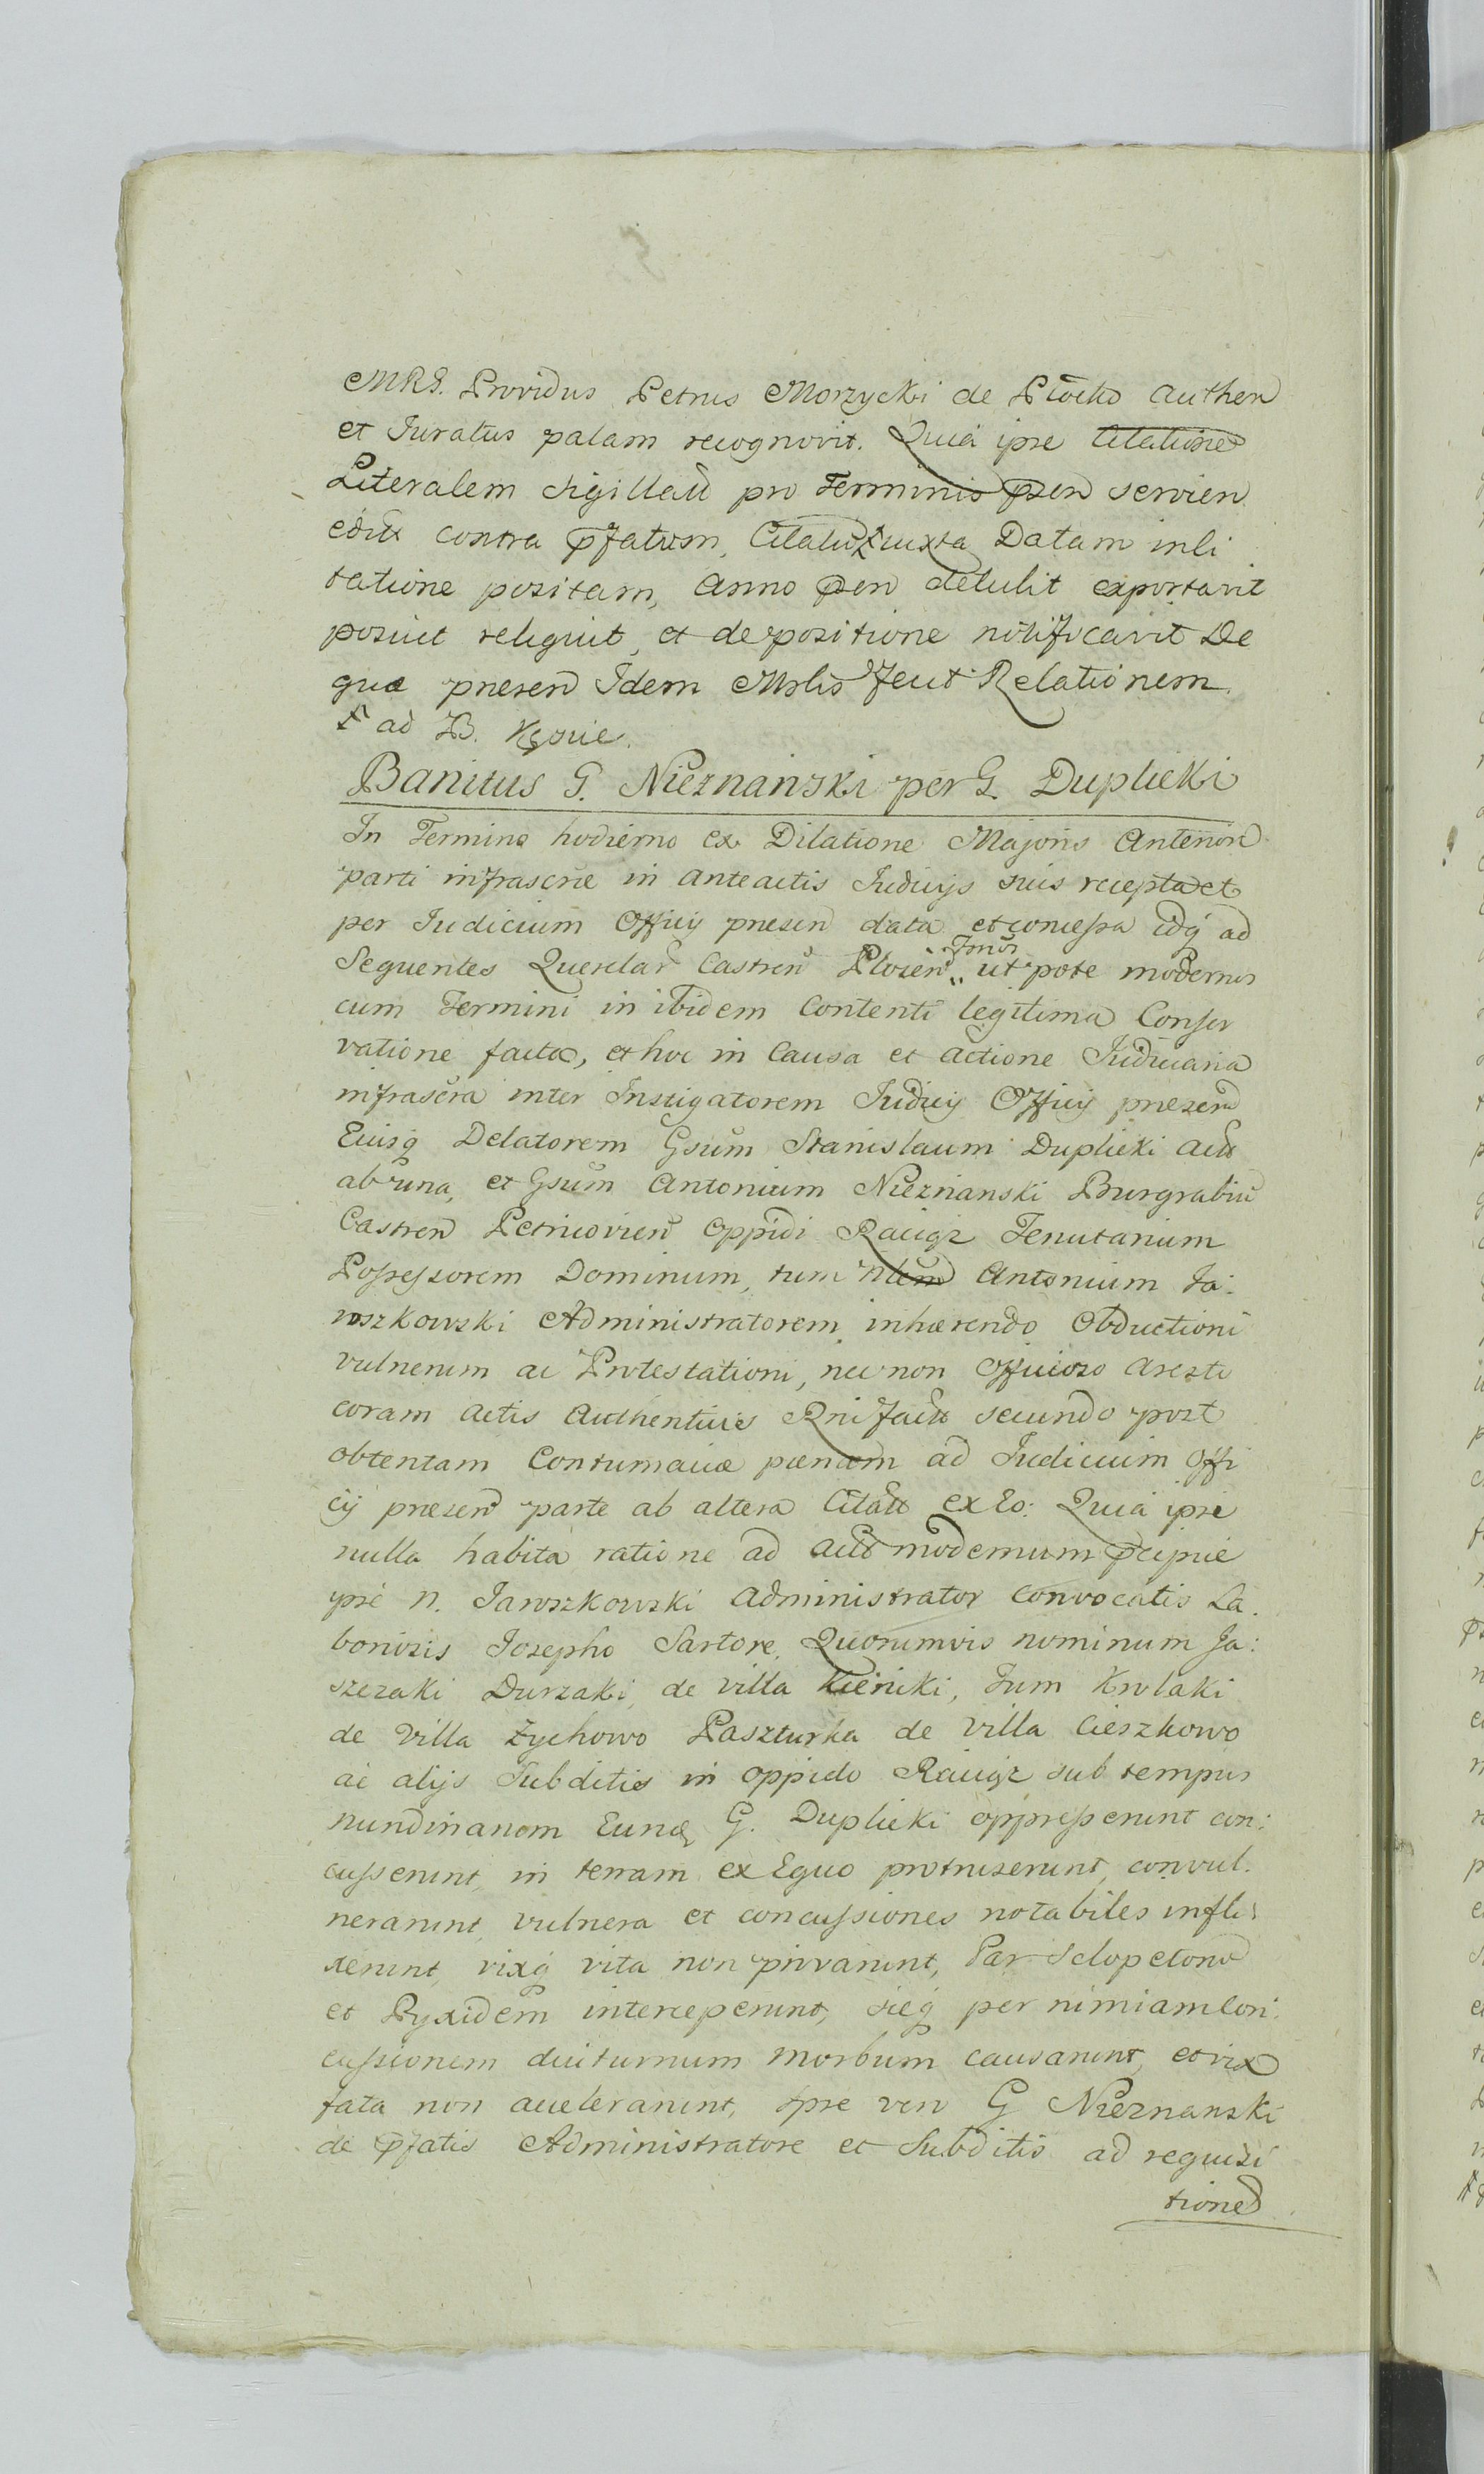 MRS. Providus Petrus Morzycki de Płocko Authen
et Juratus palam recognovit. Quia ipse Citatione
Literalem Sigillatt pro Terminis psen servien
editt contra pfatum, Citatu iuxta Datam in Ci
tatione positam, Anno psen detulit exportavit
posuit reliquit, et de positione notificavit De
qua presen Idem Mrlis fecit Relationem.
ad B. Kęsice.
Banitus G. Nieznanski per G. Duplicki
In Termino hodierno ex Dilatione Majoris Anterior
parti infrascrie in anteactis Judicijs suis recepta et
per Judicium Officij presen data et concessa idq ad
Sequentes Querelar Castren Plocen Tmis ut pote modernos
cum Termini in ibidem Contenti legitima Conser
vatione facta, et hoc in Causa et actione Judiciaria
infrascra inter Instigatorem Judicij Officij presen
Eiusq Delatorem Gsum Stanislaum Duplicki Actt
ab una, et Gsum Antonium Nieznanski Burgrabiu
Castren Petricovien Oppidi Raciąz Tenutarium
Possessorem Dominum, tum Nlem Antonium Ja:
roszkowski Administratorem inhærendo Obductioni
vulnerum ac Protestationi, nec non Officioso Aresto
coram Actis Authenticis Rni factt secundo post
obtentam Contumaciæ pœnam ad Judicium Offi
cij presen parte ab altera Citatt ex Eo: Quia ipsi
nulla habita ratione ad actt modernum pcipue
ipse N. Jaroszkowski Administrator Convocatis La.
boriosis Josepho Sartore, Quorumvis nominum Ja:
szczaki Durzaki, de villa Kiernicki, Tum Krolaki
de Villa Zychowo Paszturka de Villa Cieszkowo
ac alijs Subditis in oppido Raciąz sub tempus
nundinarum Eund G. Duplicki oppresserunt con:
cusserunt, in terram ex Equo protruserunt, convul.
nerarunt, vulnera et concussiones notabiles infli:
xerunt, vixq vita non privarunt, Par Sclopetorum
et Pyxidem interceperunt, sicq per nimiam Con:
cussionem diuturnum morbum causarunt, et vix
fata non accelerarunt, Ipse vero G Nieznanski
de pfatis Administratore et Subditis ad requisi
tione